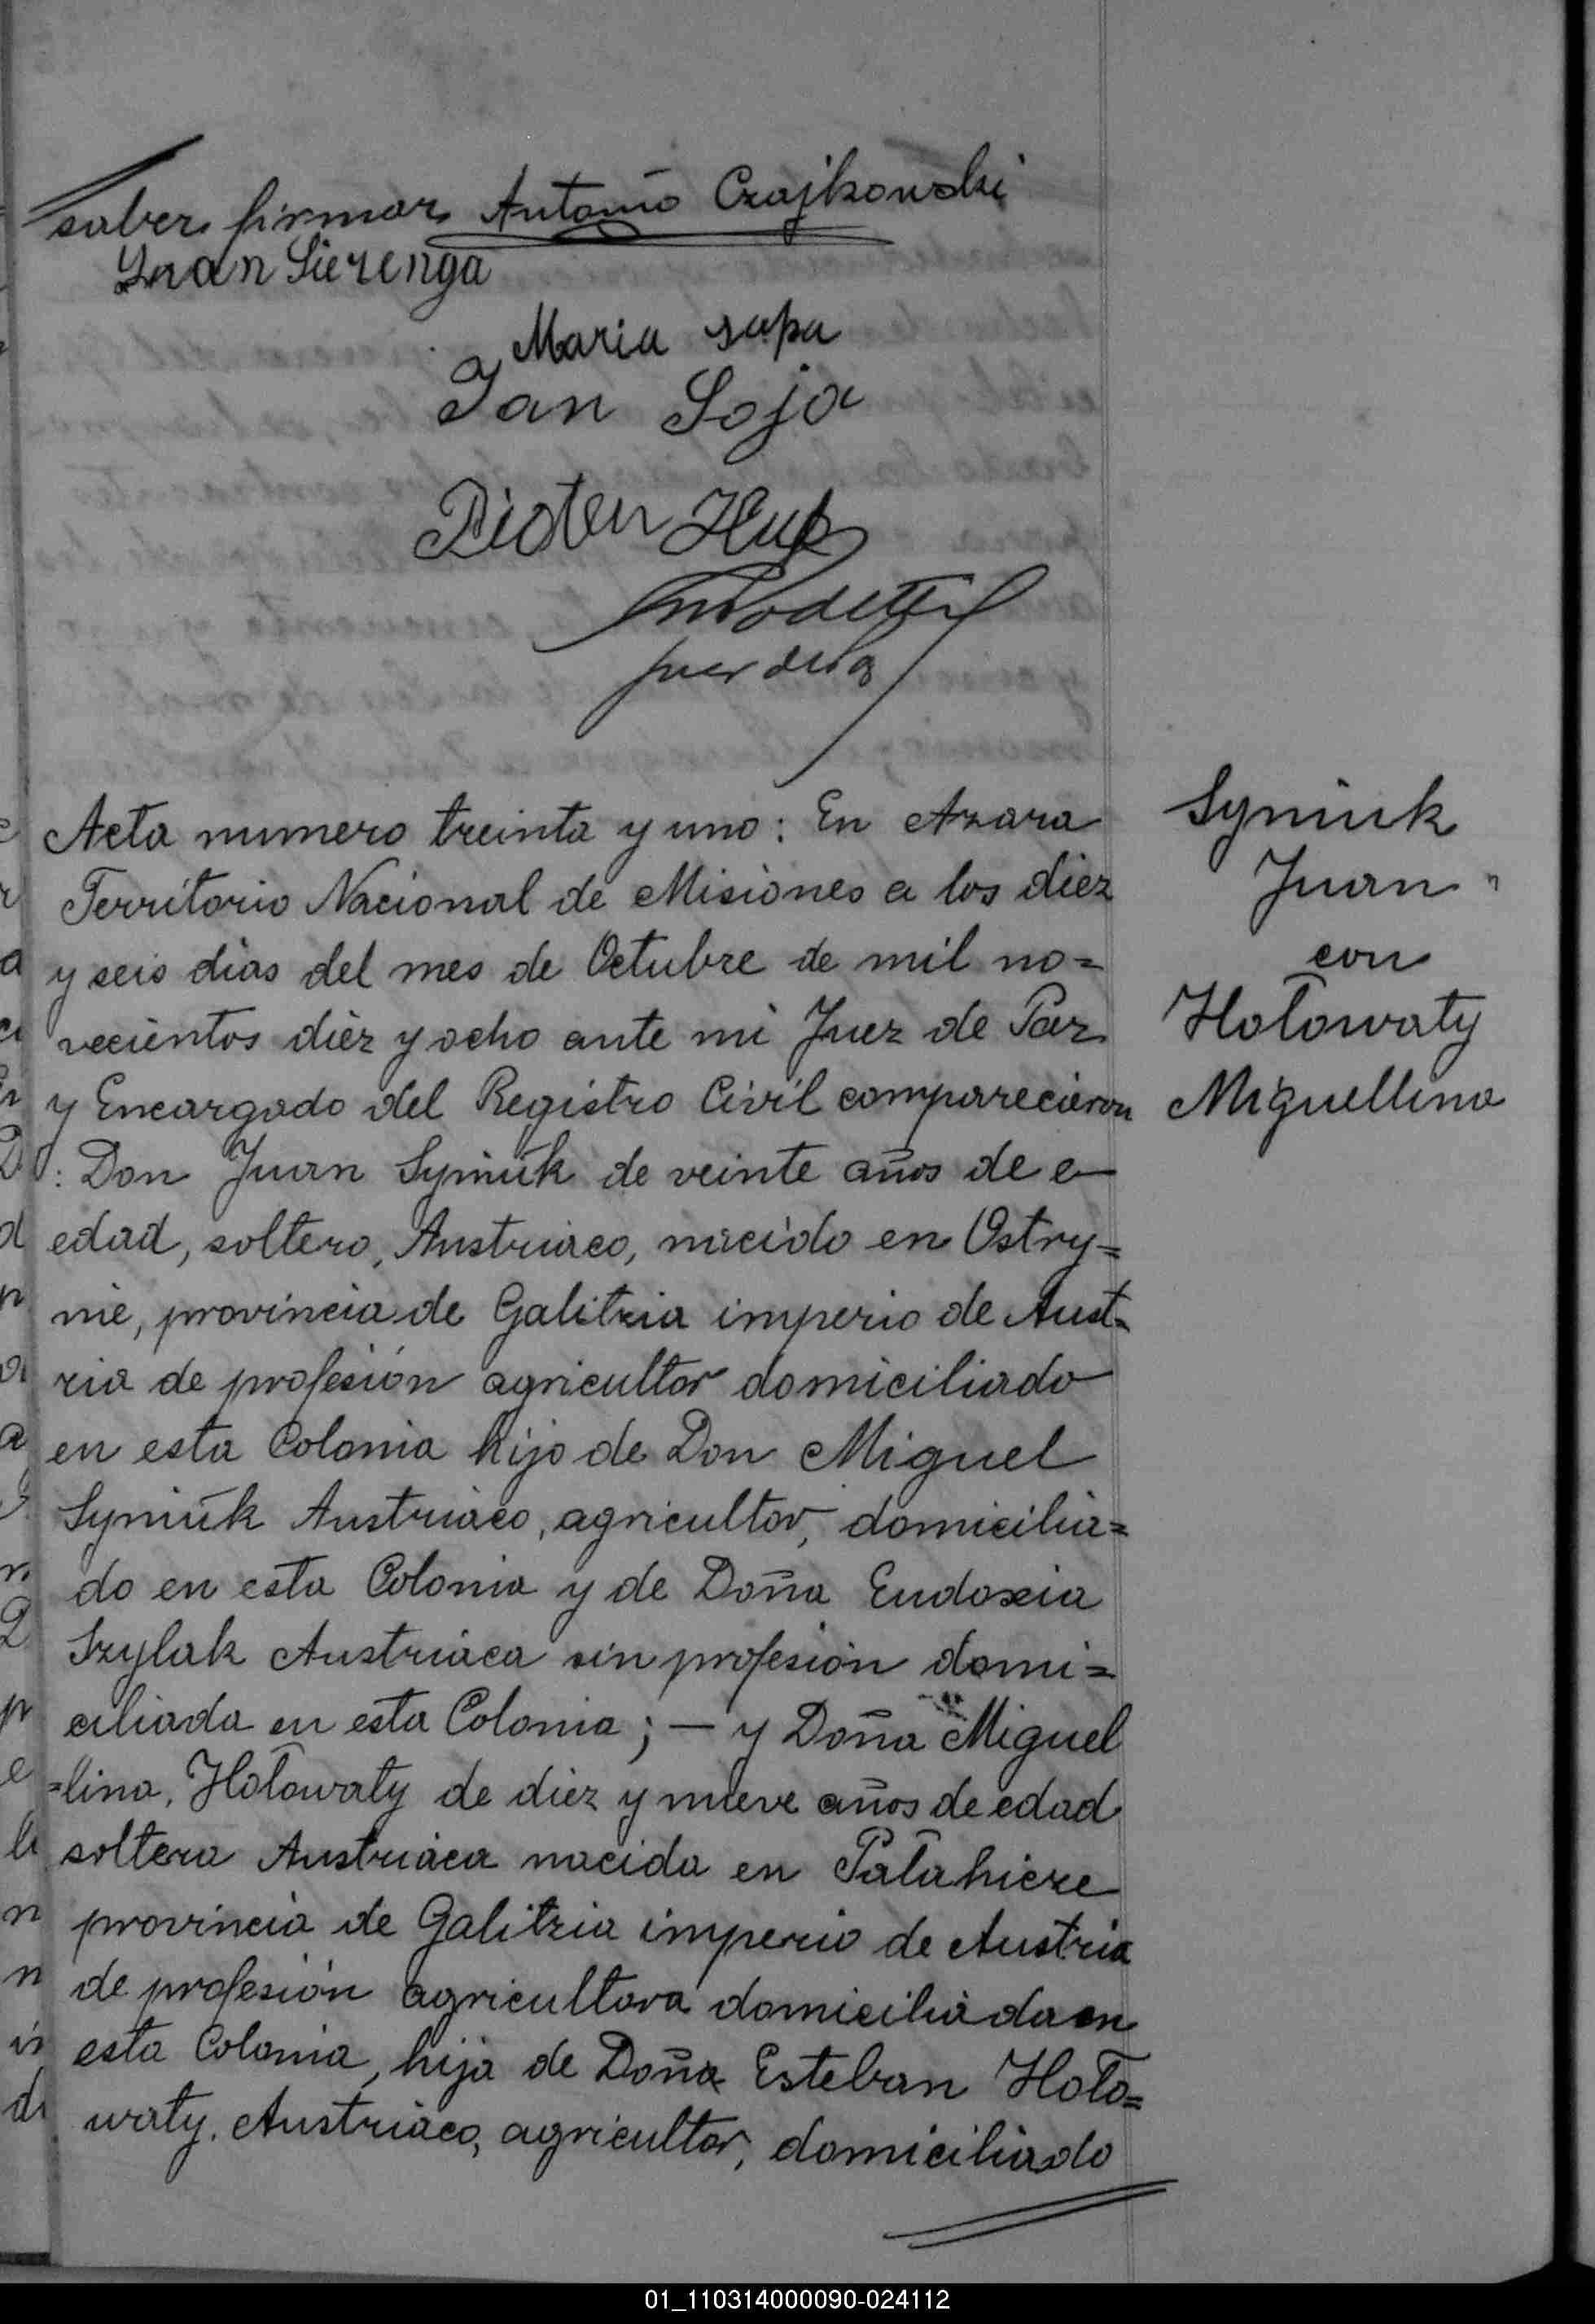 saber firmar Antonio Czajkowski
Maria sapa
Jan Soja
Acta numero treinta y uno: En Azara
Territorio Nacional de Misiones a los diez
y seis dias del mes de Octubre de mil no=
vecientos diez y ocho ante mi Juez de Paz
y Encargado del Registro Civil comparecieron
: Don Juan Syniuk de veinte años de e
edad, soltero, Austriaco, nacido en Ostry=
nie, provincia de Galitzia imperio de Aust=
ria de profesión agricultor domiciliado
en esta Colonia hijo de Don Miguel
Syniuk Austriaco, agricultor, domicilia=
do en esta Colonia y de Doña Eudoxia
Szylak Austriaca sin profesión domi=
ciliada en esta Colonia; — y Doña Miguel
=lina, Hołowaty de diez y nueve años de edad
soltera Austriaca nacida en Pałahicze
provincia de Galitzia imperio de Austria
de profesión agricultora domiciliada en
esta Colonia, hija de Doña Esteban Hoło=
waty, Austriaco, agricultor, domiciliado
Syniuk
Juan
con
Hołowaty
Miguellina
01_110314000090-024112